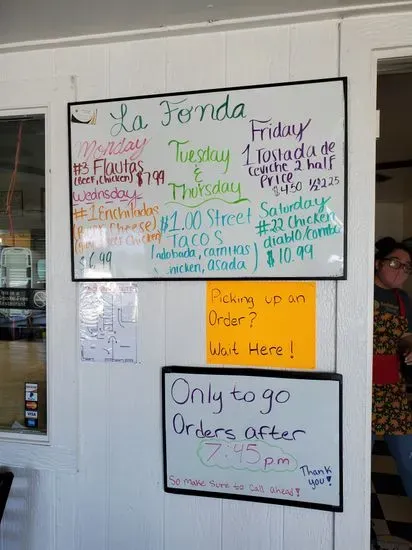 La Fonda
Monday
#3 Flautas
(Beef, Chicken) $7.99
Wednesday
#1 Enchiladas
Cheese)
Beef Chicken)
$6.99
Tuesday
&
Thursday
$1.00 Street
Tacos
(adobada, carnitas
chicken, asada)
Friday
1 Tostada de
ceviche 2 half
Price
$4.50 ½ 2.25
Saturday
#22 Chicken
diablo/combo
$10.99
Picking up an
Order?
Wait Here!
Only to go
Orders after
7:45pm
Thank
you!
So make sure to call ahead!